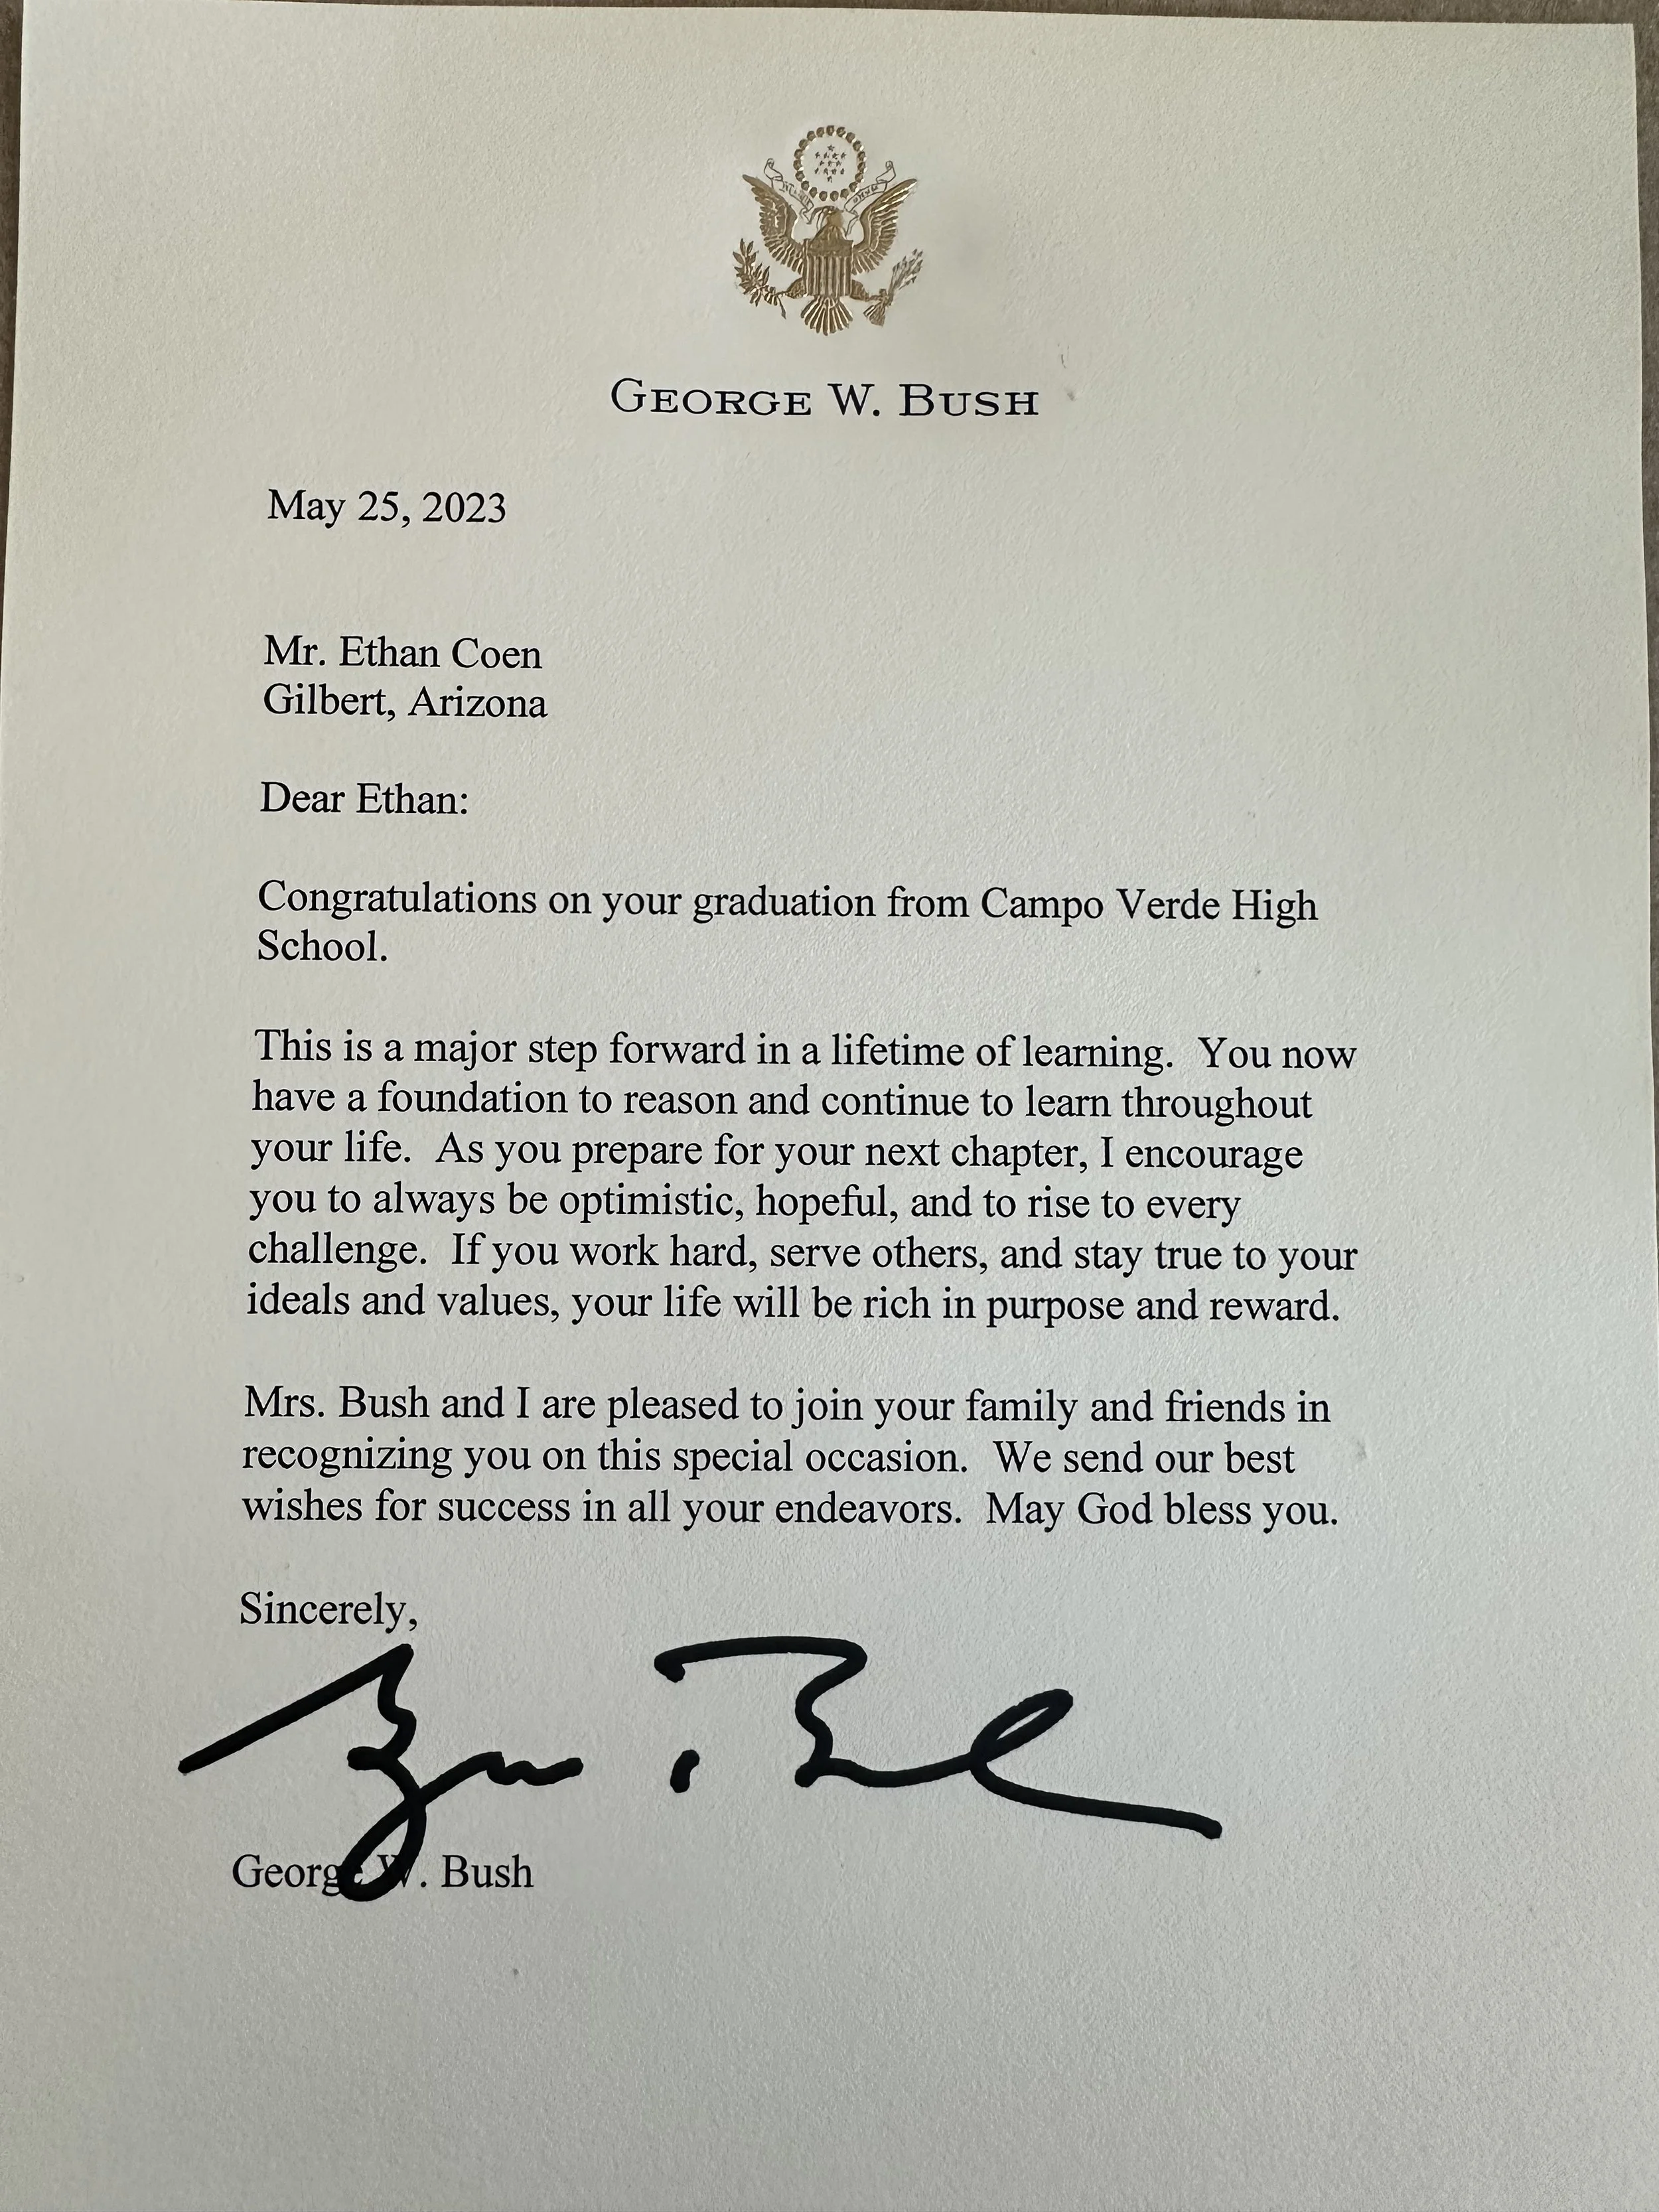 GEORGE W. BUSH
May 25, 2023
Mr. Ethan Coen
Gilbert, Arizona
Dear Ethan:
Congratulations on your graduation from Campo Verde High
School.
This is a major step forward in a lifetime of learning.  You now
have a foundation to reason and continue to learn throughout
your life.  As you prepare for your next chapter, I encourage
you to always be optimistic, hopeful, and to rise to every
challenge.  If you work hard, serve others, and stay true to your
ideals and values, your life will be rich in purpose and reward.
Mrs. Bush and I are pleased to join your family and friends in
recognizing you on this special occasion.  We send our best
wishes for success in all your endeavors.  May God bless you.
Sincerely,
George W. Bush